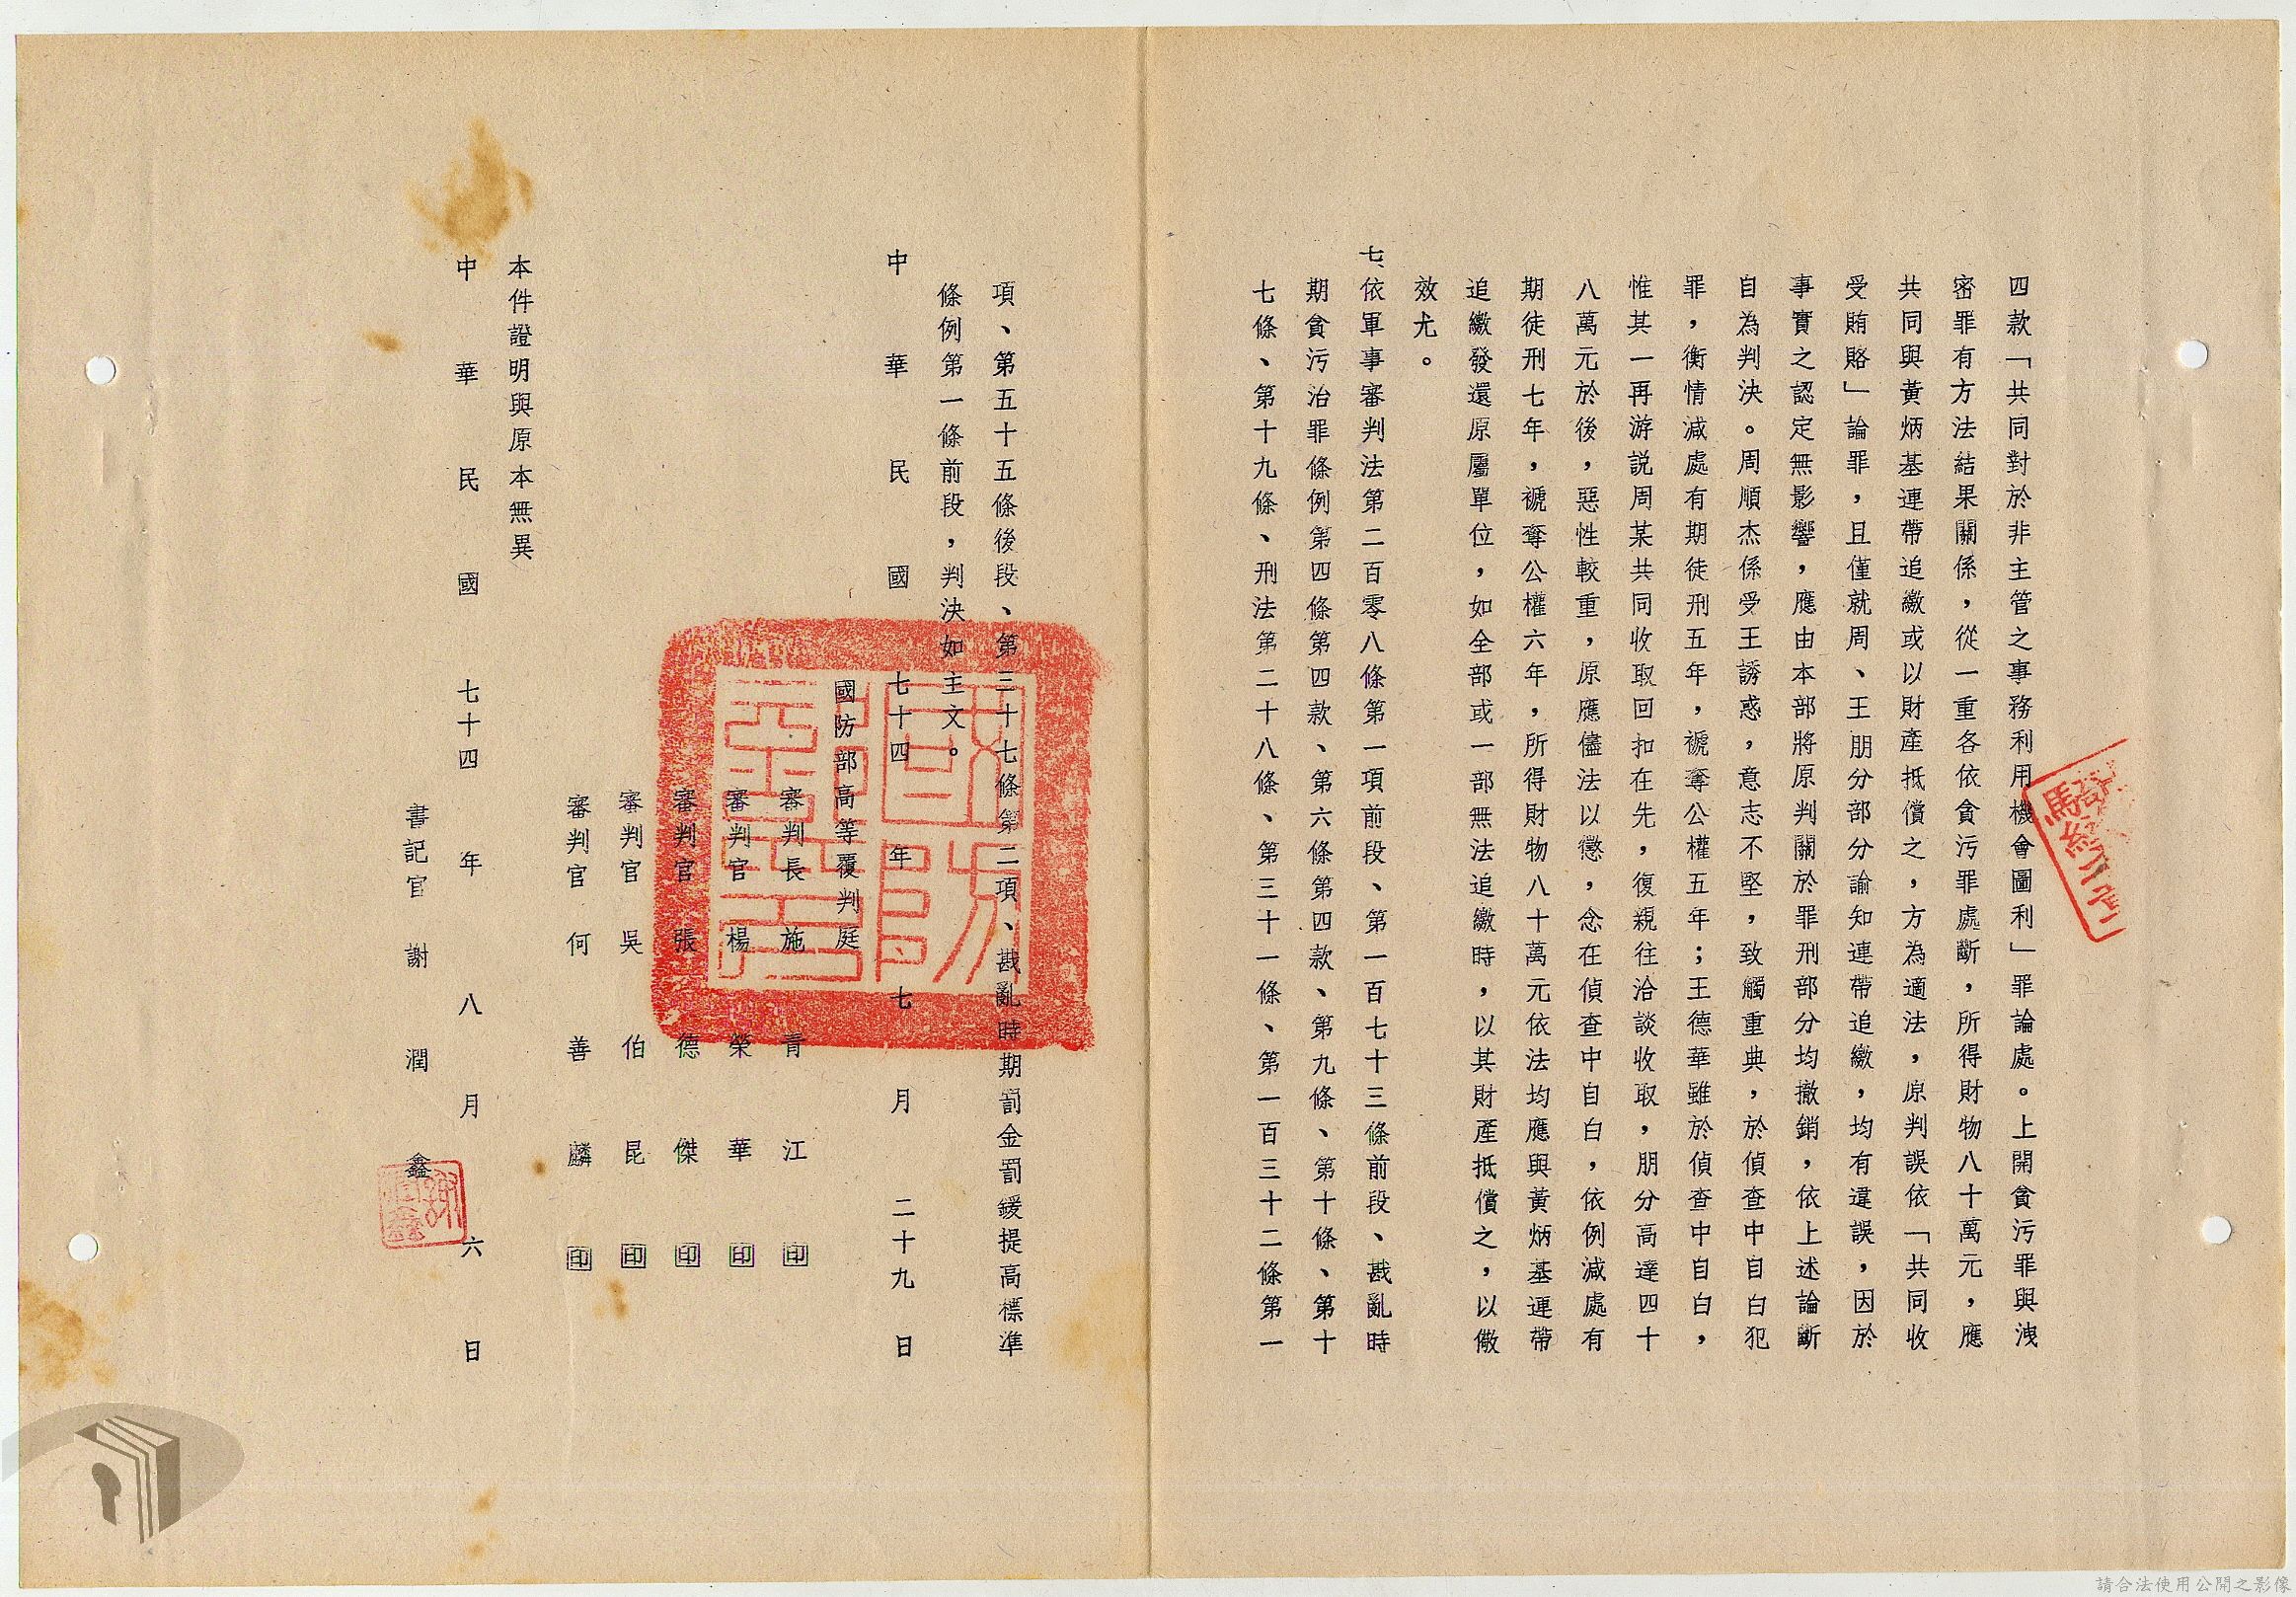 四款「共同對於非主管之事務利用機會圖利」罪論處。上開貪污罪與洩
密罪有方法結果關係，從一重各依貪污罪處斷，所得財物八十萬元，應
共同與黃炳基連帶追繳或以財產抵償之，方為適法，原判誤依「共同收
受賄賂」論罪，且僅就周、王朋分部分諭知連帶追繳，均有違誤，因於
事實之認定無影響，應由本部將原判關於罪刑部分均撤銷，依上述論斷
自為判決。周順杰係受王誘惑，意志不堅，致觸重典，於偵查中自白犯
罪，衡情減處有期徒刑五年，褫奪公權五年；王德華雖於偵查中自白，
惟其一再游說周某共同收取回扣在先，復親往洽談收取，朋分高達四十
八萬元於後，惡性較重，原應儘法以懲，念在偵查中自白，依例減處有
期徒刑七年，褫奪公權六年，所得財物八十萬元依法均應與黃炳基連帶
追繳發還原屬單位，如全部或一部無法追繳時，以其財產抵償之，以儆
效尤。
七、依軍事審判法第二百零八條第一項前段、第一百七十三條前段、戡亂時
期貪污治罪條例第四條第四款、第六條第四款、第九條、第十條、第十
七條、第十九條、刑法第二十八條、第三十一條、第一百三十二條第一
項、第五十五條後段、第三十七條第二項、戡亂時期罰金罰鍰提高標準
條例第一條前段，判決如主文。
中華民國七十四年七月二十九日
國防部高等覆判庭
審判長施青江印
審判官楊榮華印
審判官張德傑印
審判官吳伯昆印
審判官何善麟印
本件證明與原本無異
中華民國七十四年八月六日
書記官謝潤鑫
謝潤鑫
請合法使用公開之影像